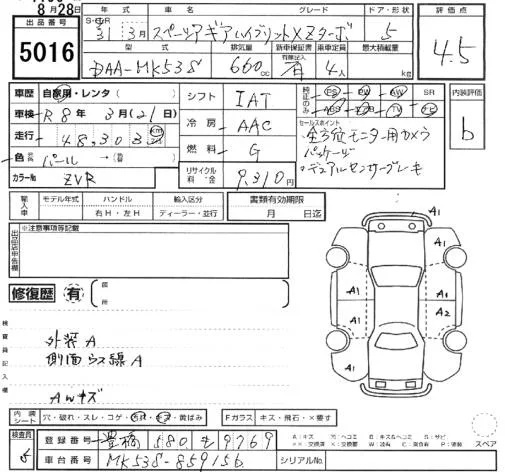 8月28日
出品番号
5016
年式 車名 グレード ドア・形状
31年 3月 スペーシアギア ハイブリッドXZターボ 5
型式 排気量 新車保証書 乗車定員 最大積載量
DAA-MK53S 660cc 有 4人 kg
評価点
4.5
内装評価
b
車歴 自家用・レンタ
車検 R8年 3月(21日)
走行 48,303km
色 パール → (替)
カラーNo ZVR
シフト IAT
冷房 AAC
燃料 G
リサイクル料・金 9,310円
PS PW AW SR
ABS TV ナビ
セールスポイント
・全方位モニター用カメラ
パッケージ
・デュアルセンサーブレーキ
輸入車 モデル年式 ハンドル 輸入区分
右H・左H ディーラー・並行
書類有効期限
月 日迄
出品店申告欄
※注意事項等記載
修復歴 有 箇所
検査員記入欄
外装A
側面ウス線A
AWキズ
A1 A1 A1 A1 A1 A2 A1
内装シート 穴・破れ・スレ・コゲ・黄ばみ
Fガラス キズ・飛石・×要す
検査員
登録番号 豊橋 580 も 9769
車台番号 MK53S-859156
シリアルNo.
A:キズ U:ヘコミ B:キズ&ヘコミ S:サビ
××:交換済 X:交換要 W:波有 C:腐食有 P:塗装
スペア